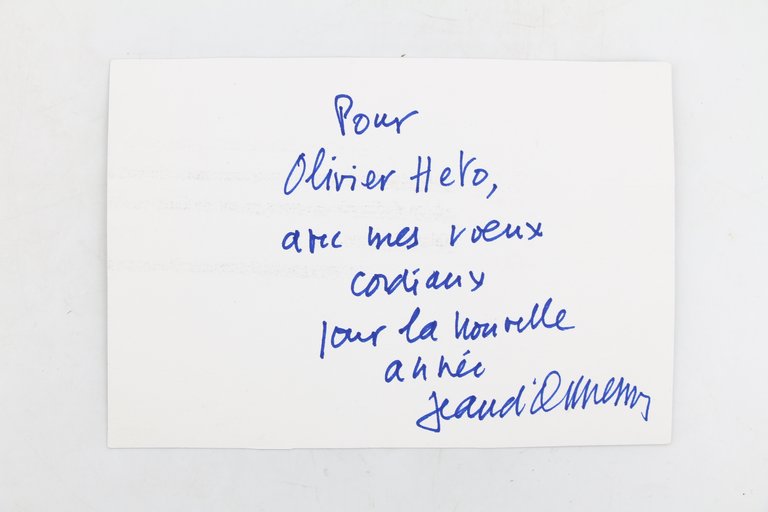 Pour
Olivier Hero,
avec mes voeux
cordiaux
pour la nouvelle
année
Jean d'Ormesson